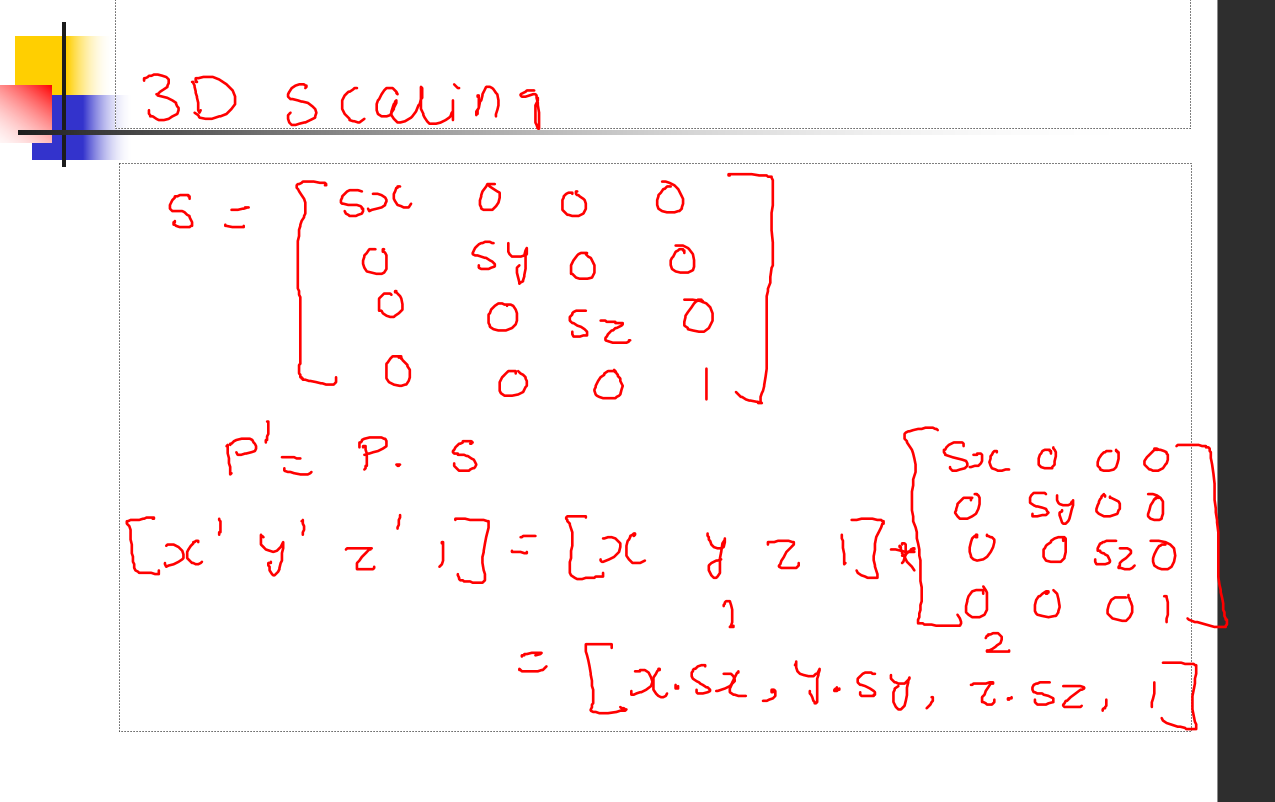 3D scaling
S = [ sx 0 0 0
0 sy 0 0
0 0 sz 0
0 0 0 1 ]
P' = P. S
[x' y' z' 1] = [x y z 1] * [ sx 0 0 0
0 sy 0 0
0 0 sz 0
0 0 0 1 ]
1 2
= [x.sx, y.sy, z.sz, 1]